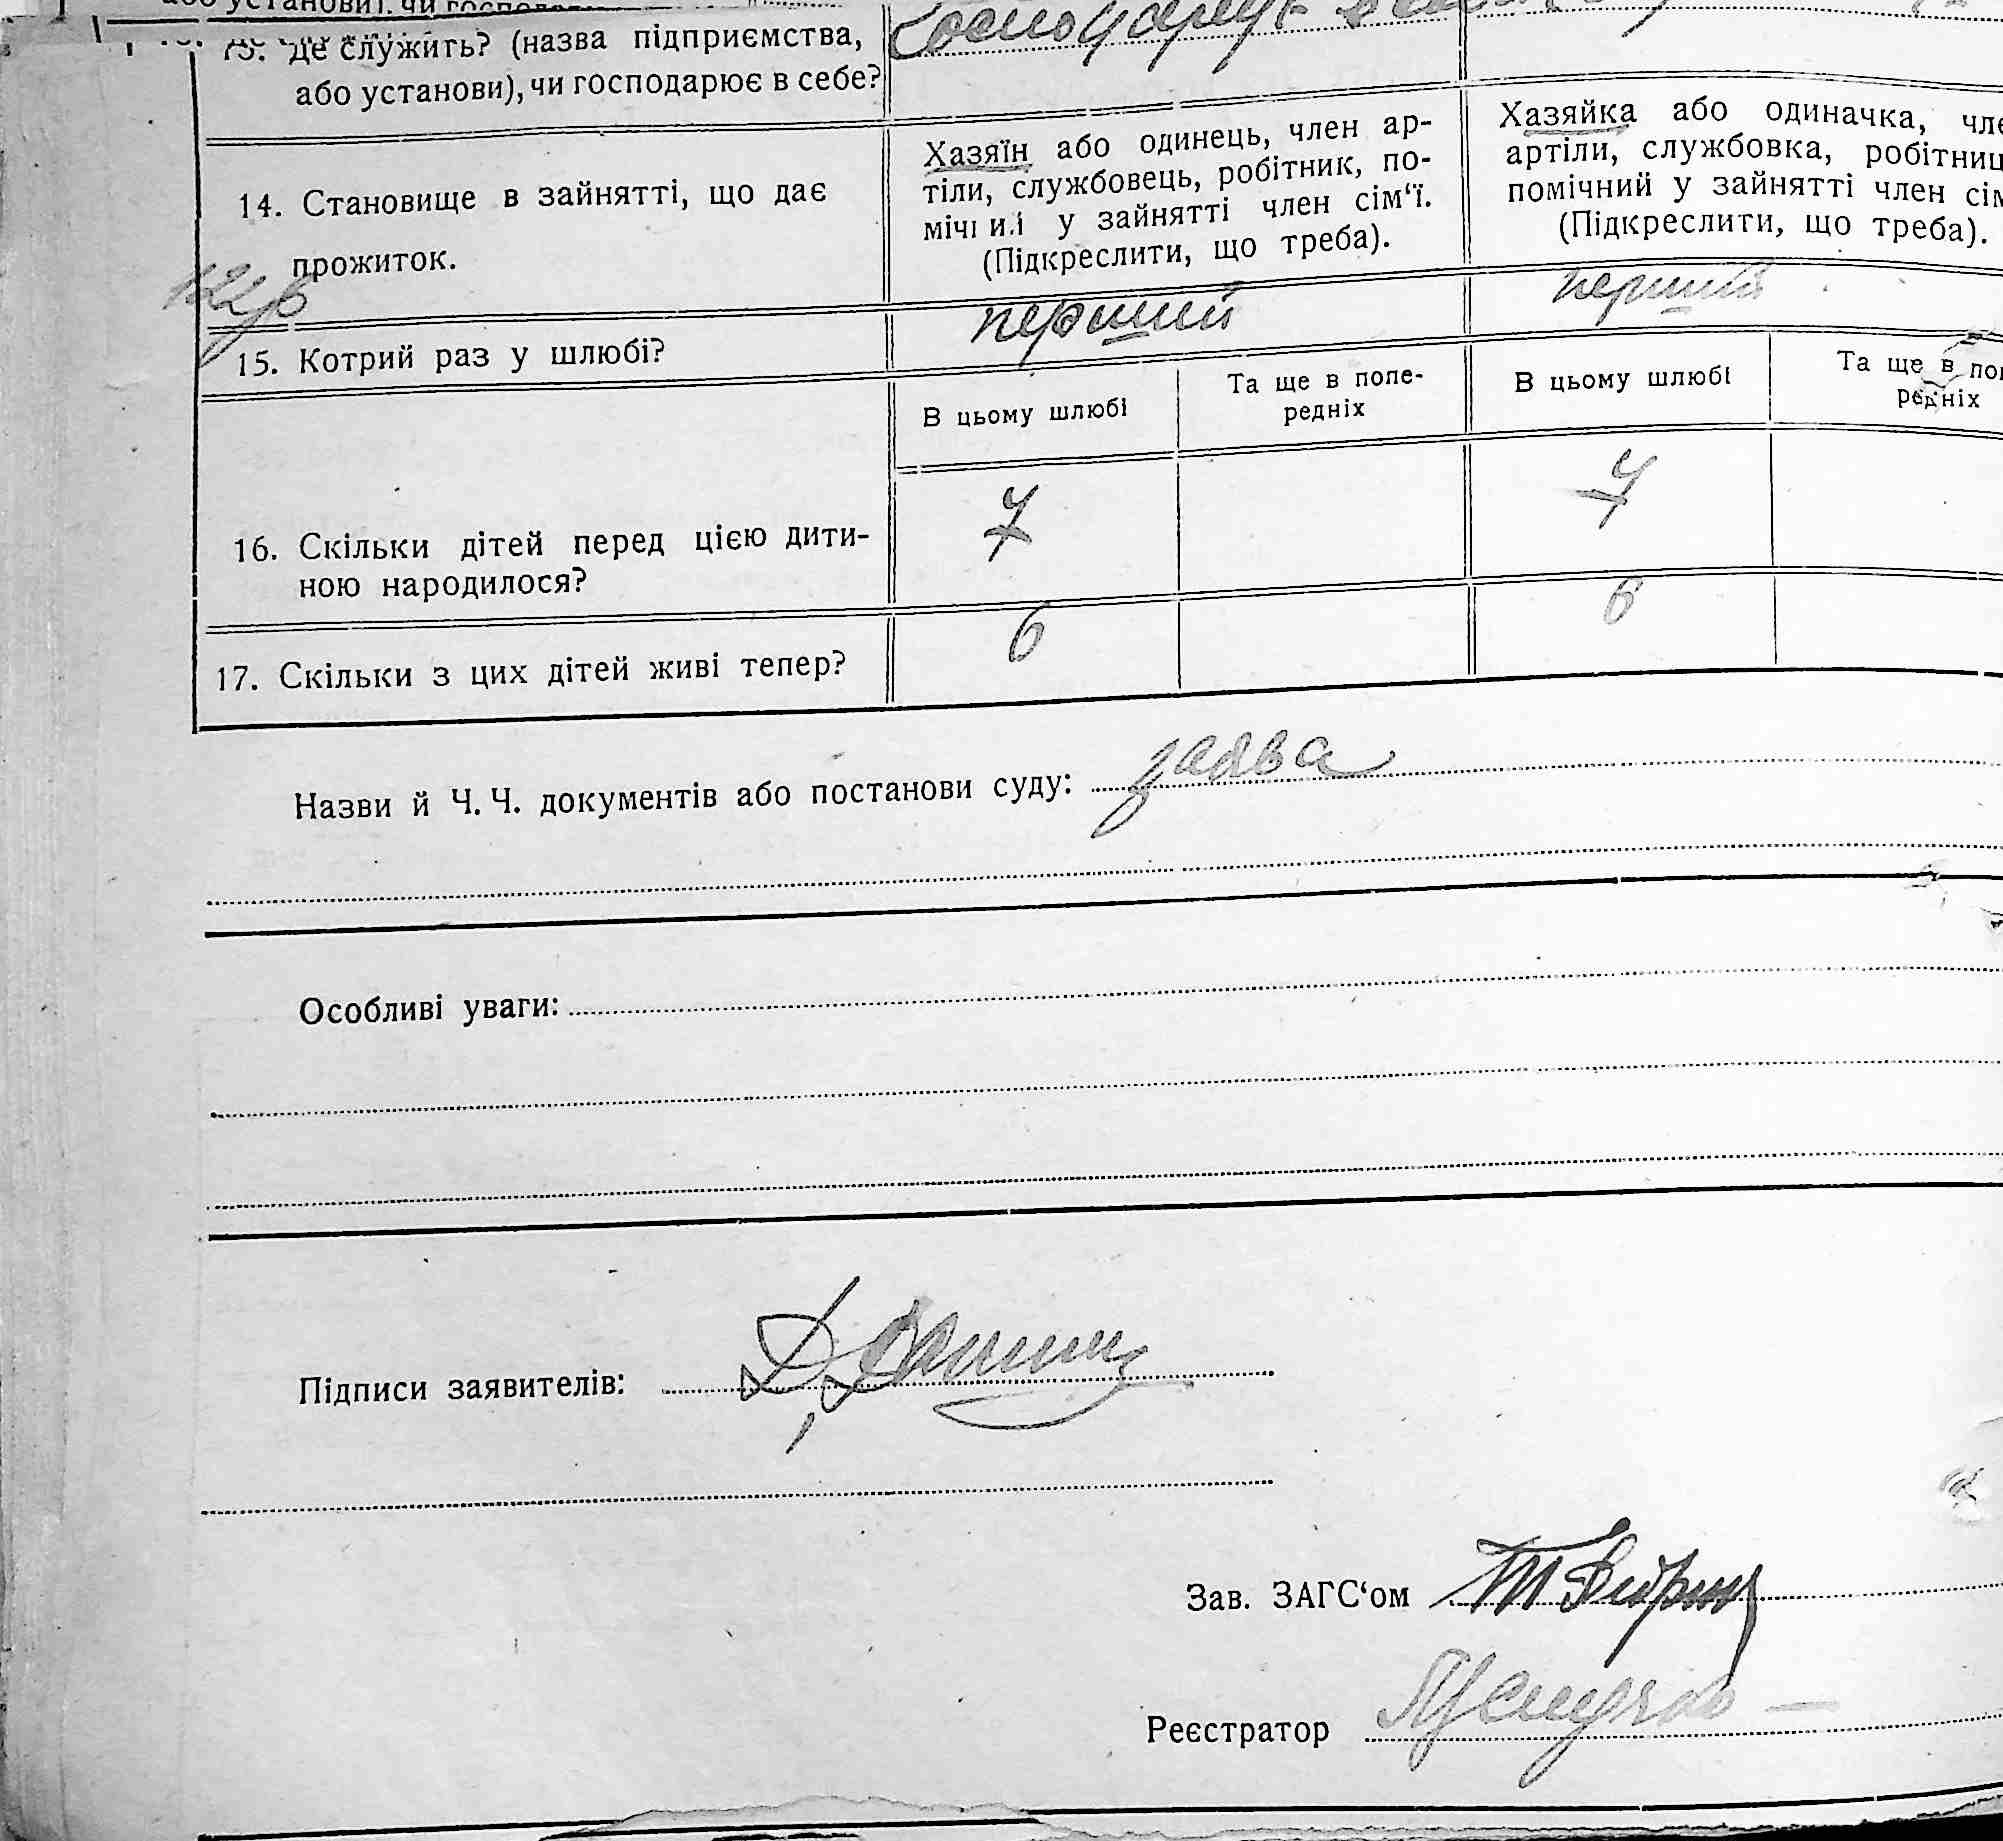 або установи), чи господа
13. Де служить? (назва підприємства,
або установи), чи господарює в себе?
14. Становище в зайнятті, що дає
прожиток.
Хазяїн або одинець, член ар-
тіли, службовець, робітник, по-
мічн и.і у зайнятті член сім‘ї.
(Підкреслити, що треба).
Хазяйка або одиначка, чле
артіли, службовка, робітниц
помічний у зайнятті член сім
(Підкреслити, що треба).
15. Котрий раз у шлюбі?
перший
перший
В цьому шлюбі
Та ще в попе-
редніх
В цьому шлюбі
Та ще в поп
редніх
16. Скільки дітей перед цією дити-
ною народилося?
7
7
17. Скільки з цих дітей живі тепер?
6
6
Назви й Ч. Ч. документів або постанови суду: заява
Особливі уваги:
Підписи заявителів:
Зав. ЗАГС‘ом
Реєстратор